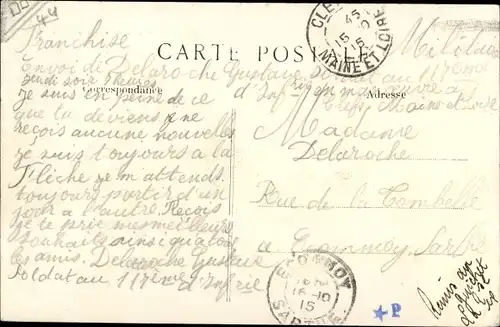 44
Franchise Militaire
CARTE POSTALE
Envoi de Delaroche Gustave Soldat au 117ème
jeudi soir 7 heures d'Infrie en manœuvre à
Correspondance Adresse
Clefs Maine et Loire
je suis en peine de ce
que tu deviens je ne
reçois aucune nouvelles
je suis toujours a la
Flèche je m'attends
toujours partir d'un
jour a l'autre. Reçois
je te prie mes meilleurs
souhaits ainsi qua tous
les amis. Delaroche Gustave
Soldat au 117ème d'Infrie
Madame
Delaroche
Rue de la Tombelle
a Ecommoy, Sarthe
CLEFS
15 - 10
15
MAINE ET LOIRE
ECOMMOY
16 - 10
15
SARTHE
★P